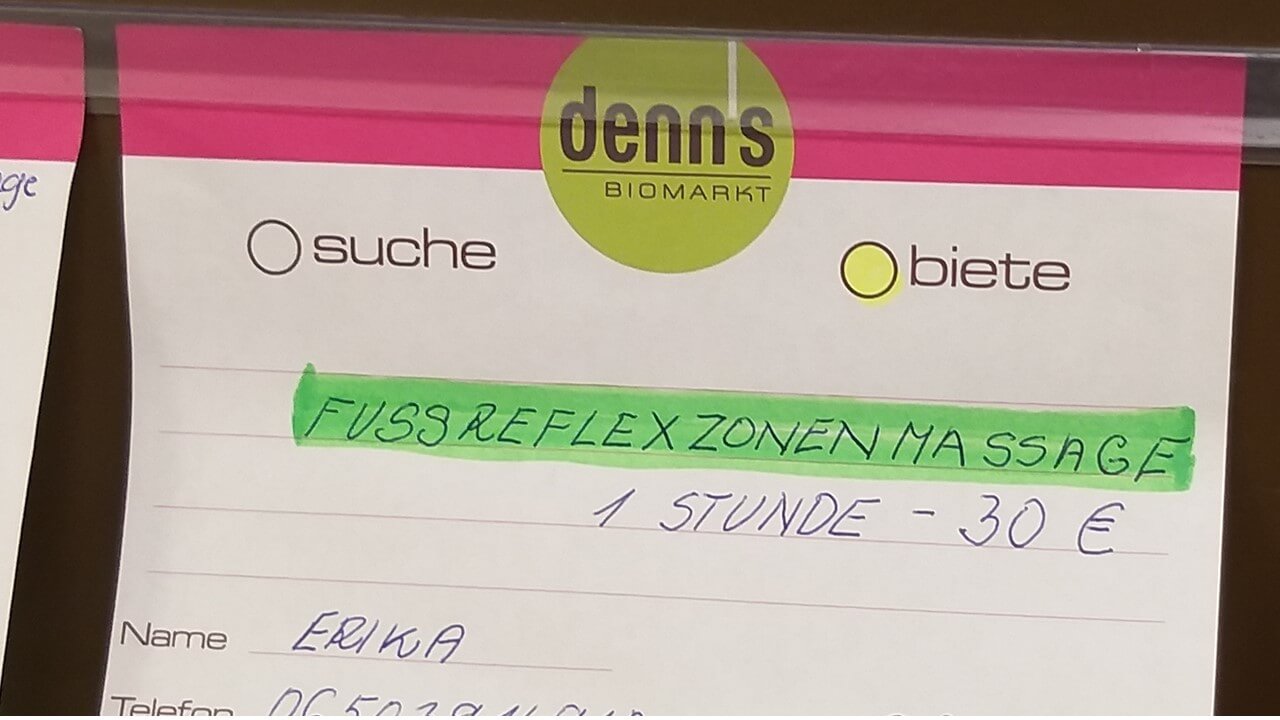 ge
denn's
BIOMARKT
suche
biete
FUSSREFLEXZONENMASSAGE
1 STUNDE - 30 €
Name ERIKA
Telefon